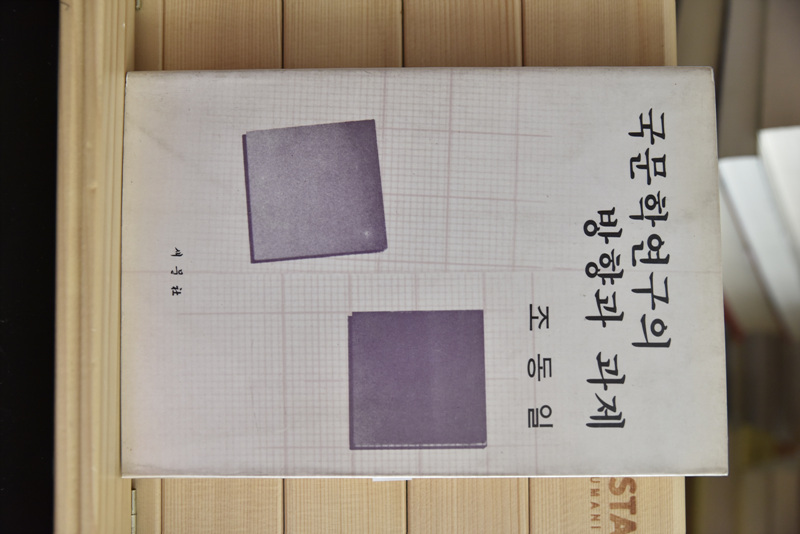 국문학연구의
방향과 과제
조동일
새문社
STA
UMANI